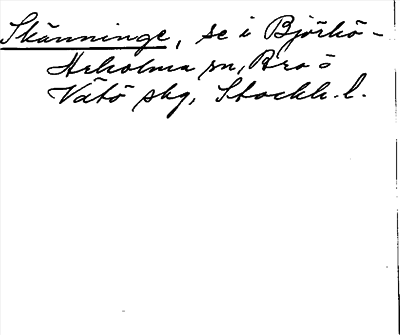 Skänninge, se i Björkö-
Arholma sn, Bro o
Vätö skg, Stockh. l.